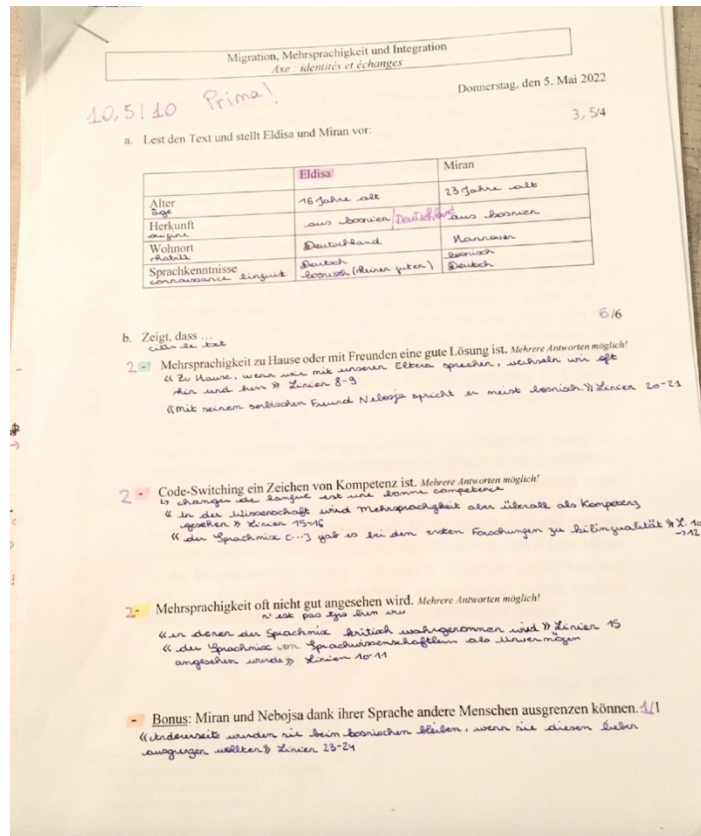 Migration, Mehrsprachigkeit und Integration
Axe : identités et échanges
Donnerstag, den 5. Mai 2022
10,5/10 Prima!
3,5/4
a. Lest den Text und stellt Eldisa und Miran vor:
Eldisa Miran
Alter 16 Jahre alt 23 Jahre alt
âge
Herkunft aus bosnien/Deutschland aus bosnien
origine
Wohnort Deutschland Hannover
Sprachkenntnisse Deutsch bosnisch
connaissance linguist bosnisch guten) Deutsch
6/6
b. Zeigt, dass ...
2 - Mehrsprachigkeit zu Hause oder mit Freunden eine gute Lösung ist. Mehrere Antworten möglich!
« Zu Hause, wenn wir mit unseren Eltern sprechen, wechseln wir oft
hin und her » Linien 8-9
« mit seinem serbischen Freund Nebosja spricht er meist bosnisch » Linien 20-21
2 - Code-Switching ein Zeichen von Kompetenz ist. Mehrere Antworten möglich!
↳ changes de langue est une bonne competence
« in der Wissenschaft wird Mehrsprachigkeit aber überall als Kompetenz
gesehen » Linien 15-16
« der Sprachmix (...) gab es bei den ersten Forschungen zu bilingualität » L. 10
→12
2 - Mehrsprachigkeit oft nicht gut angesehen wird. Mehrere Antworten möglich!
n'est pas tjrs bien vu
« in denen der Sprachmix kritisch wahrgenommen wird » Linien 15
« der Sprachmix von Sprachwissenschaftlern als Unvermögen
angesehen wurde » Linien 10-11
- Bonus: Miran und Nebojsa dank ihrer Sprache andere Menschen ausgrenzen können. 1/1
« Andererseits wurden sie beim bosnischen bleiben, wenn sie diesen lieber
ausgrenzen wollten » Linien 23-24